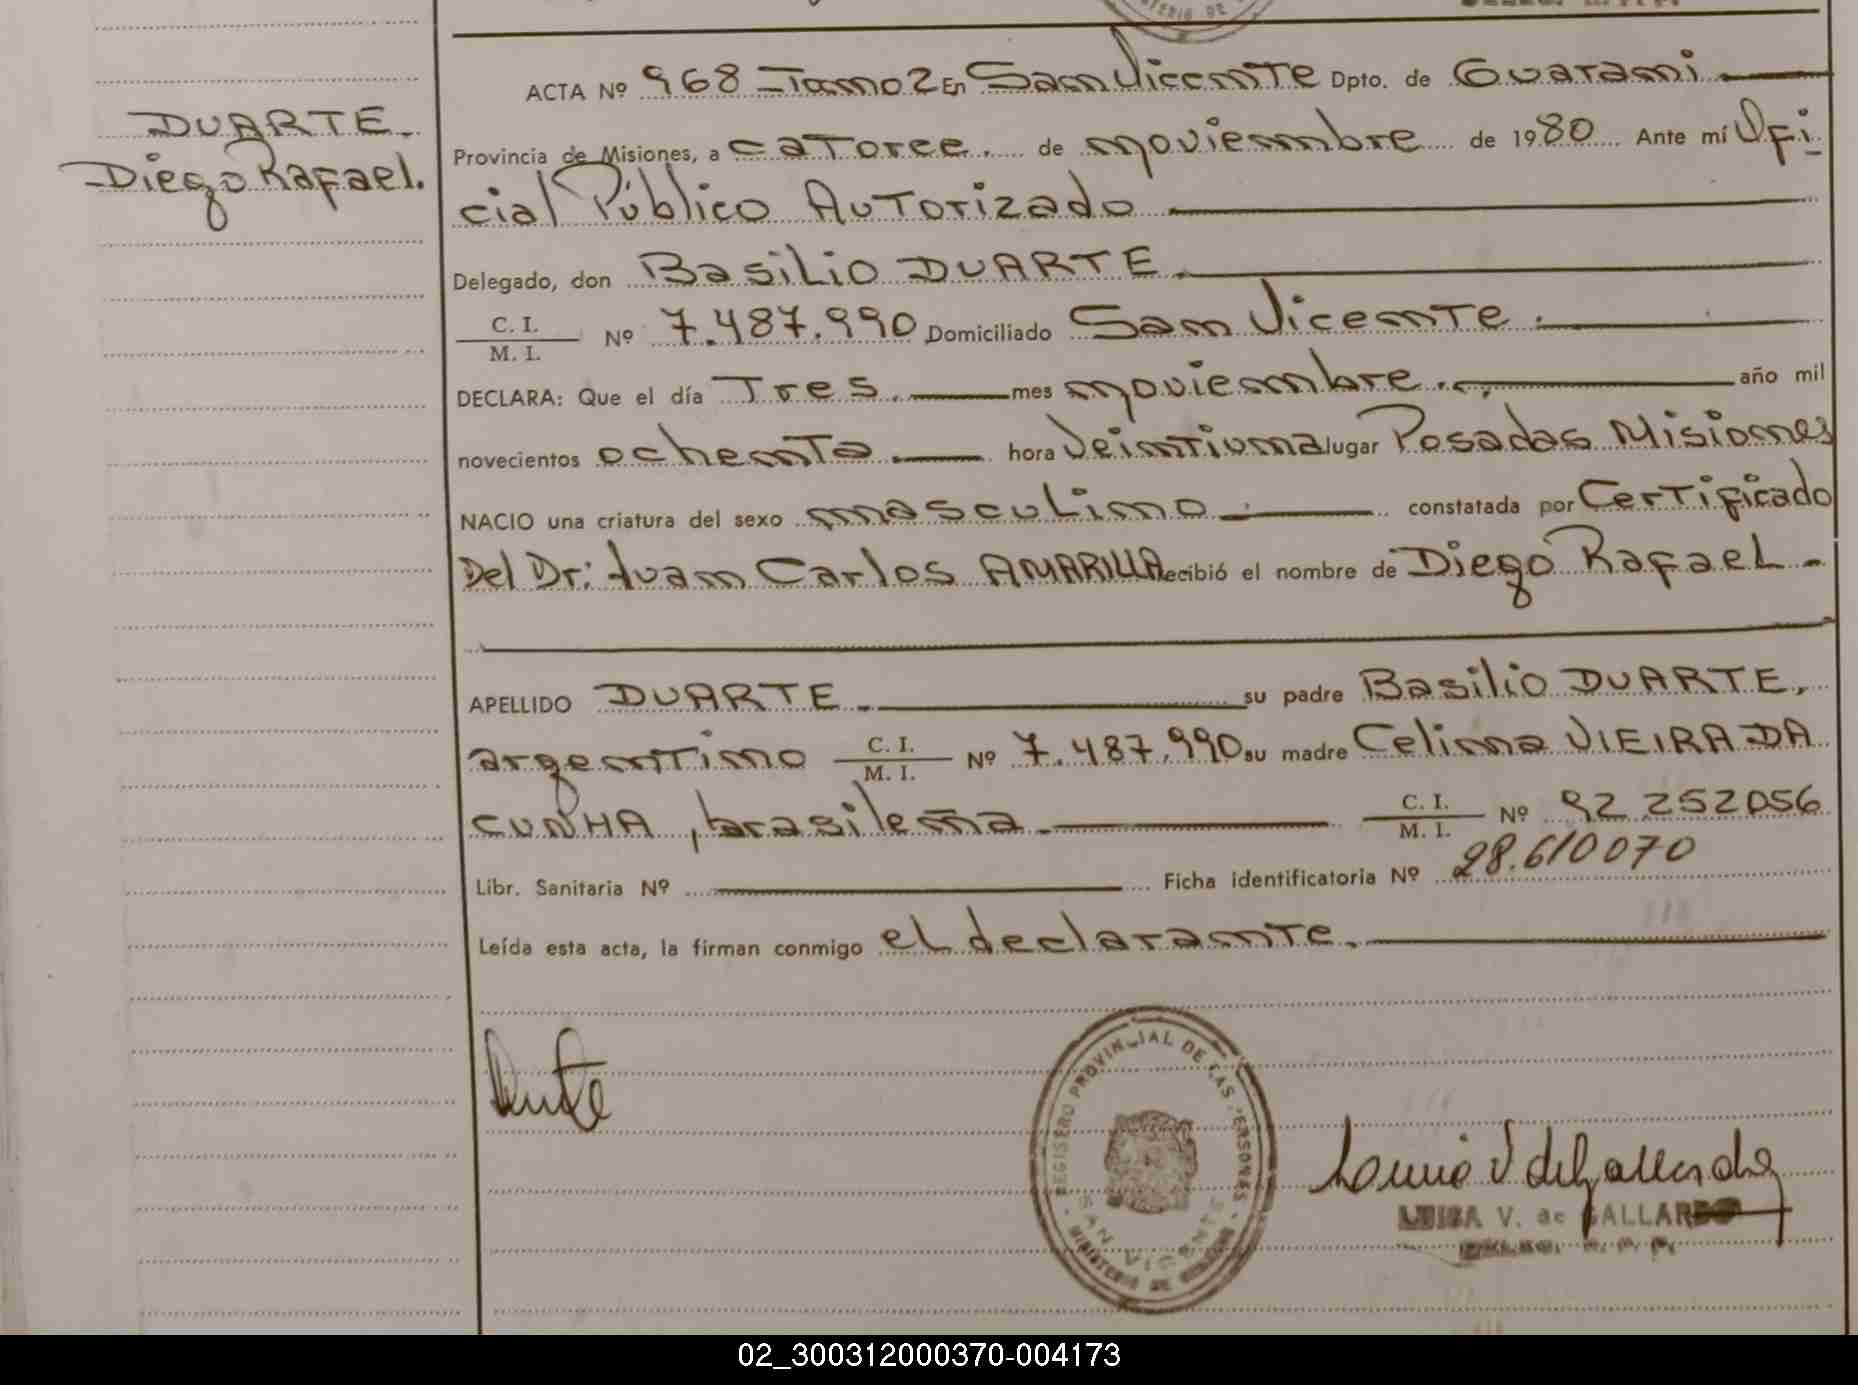 MINISTERIO DE
ACTA Nº 968 - Tomo 2 En San Vicente Dpto. de Guarani
DUARTE.
Diego Rafael.
Provincia de Misiones, a catorce. de noviembre de 1980 Ante mí Ofi
cial Público Autorizado
Delegado, don Basilio DUARTE.
C. I.
M. I. Nº 7.487.990 Domiciliado San Vicente.
DECLARA: Que el día Tres. mes noviembre. año mil
novecientos ochenta. hora veintiuna lugar Posadas Misiones
NACIO una criatura del sexo masculino constatada por Certificado
Del Dr: Juan Carlos AMARILLA recibió el nombre de Diego Rafael -
APELLIDO DUARTE. su padre Basilio DUARTE,
argentino C. I. M. I. Nº 7.487.990 su madre Celinna VIEIRA DA
CUNHA, brasileña. C. I. M. I. Nº 92 252056
Libr. Sanitaria Nº Ficha identificatoria Nº 28.610070
Leída esta acta, la firman conmigo el declarante.
REGISTRO PROVINCIAL DE LAS PERSONAS
SAN VICENTE
MINISTERIO DE GOBIERNO
LUISA V. de GALLARDO